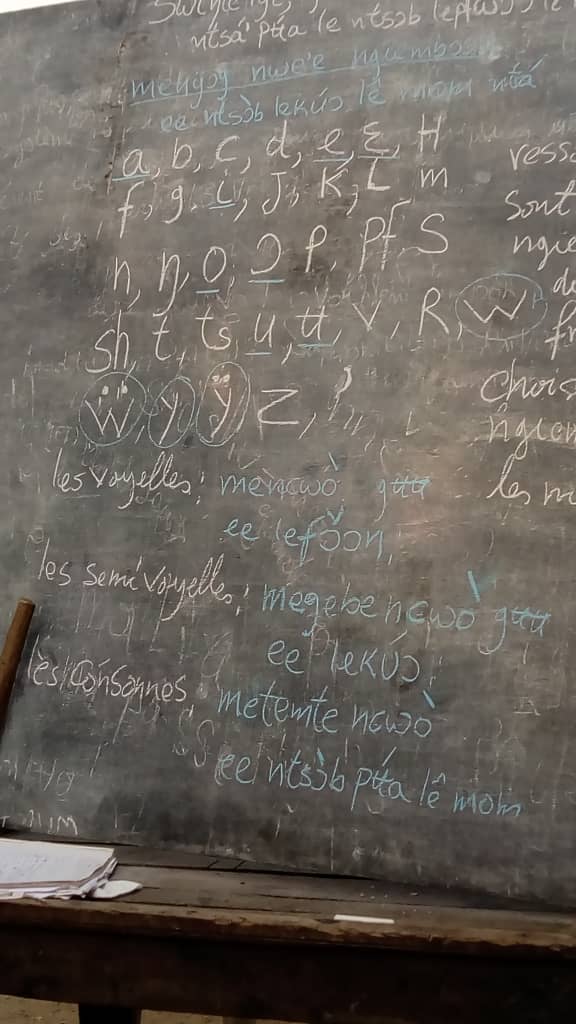 ntsá' pʉ́a lê ntsɔb
meŋgɔŋ ŋwe'e ngumbɔɔ
ee ntsɔ̀b lekúɔ, lê mom ntá
a, b, c, d, e, ɛ, H
f, g, i, J, K, L m
n, ŋ, o, ɔ, p, pf, S
sh, t, ts, u, ʉ, V, R, W
Ẅ, y, ÿ, Z, '
les voyelles: mencwò gʉʉ
ee lefɔ̌ɔn,
les semi voyelles: megebe ncwò gʉʉ
ee lekúɔ,
les consonnes metemte ncwò
ee ntsɔ̀b pʉ́a lê mom
Sont
Chois
les m